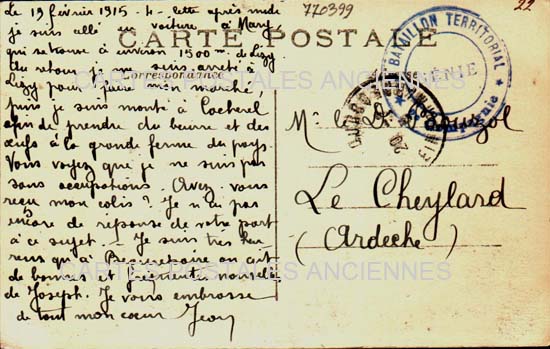 Le 19 février 1915 - 4 - cette après midi
je suis allé en voiture à Mary
qui se trouve à environ 1500 m. de Lizy
Au retour je me suis arrêté à
Lizy pour faire mon marché,
puis je suis monté à Cocherel
afin de prendre du beurre et des
œufs à la grande ferme du pays.
Vous voyez que je ne suis pas
sans occupations. Avez vous
reçu mon colis ? Je n'ai pas
encore de réponse de votre part
à ce sujet. - Je suis très heu-
reux qu'à ait
de bonnes et fréquentes nouvelles
de Joseph. Je vous embrasse
de tout mon cœur Jean
CARTE POSTALE
Correspondance
770399
22
BATAILLON TERRITORIAL
GÉNIE
M. le Dr
Le Cheylard
(Ardèche)
CARTES POSTALES ANCIENNES
CARTES POSTALES ANCIENNES